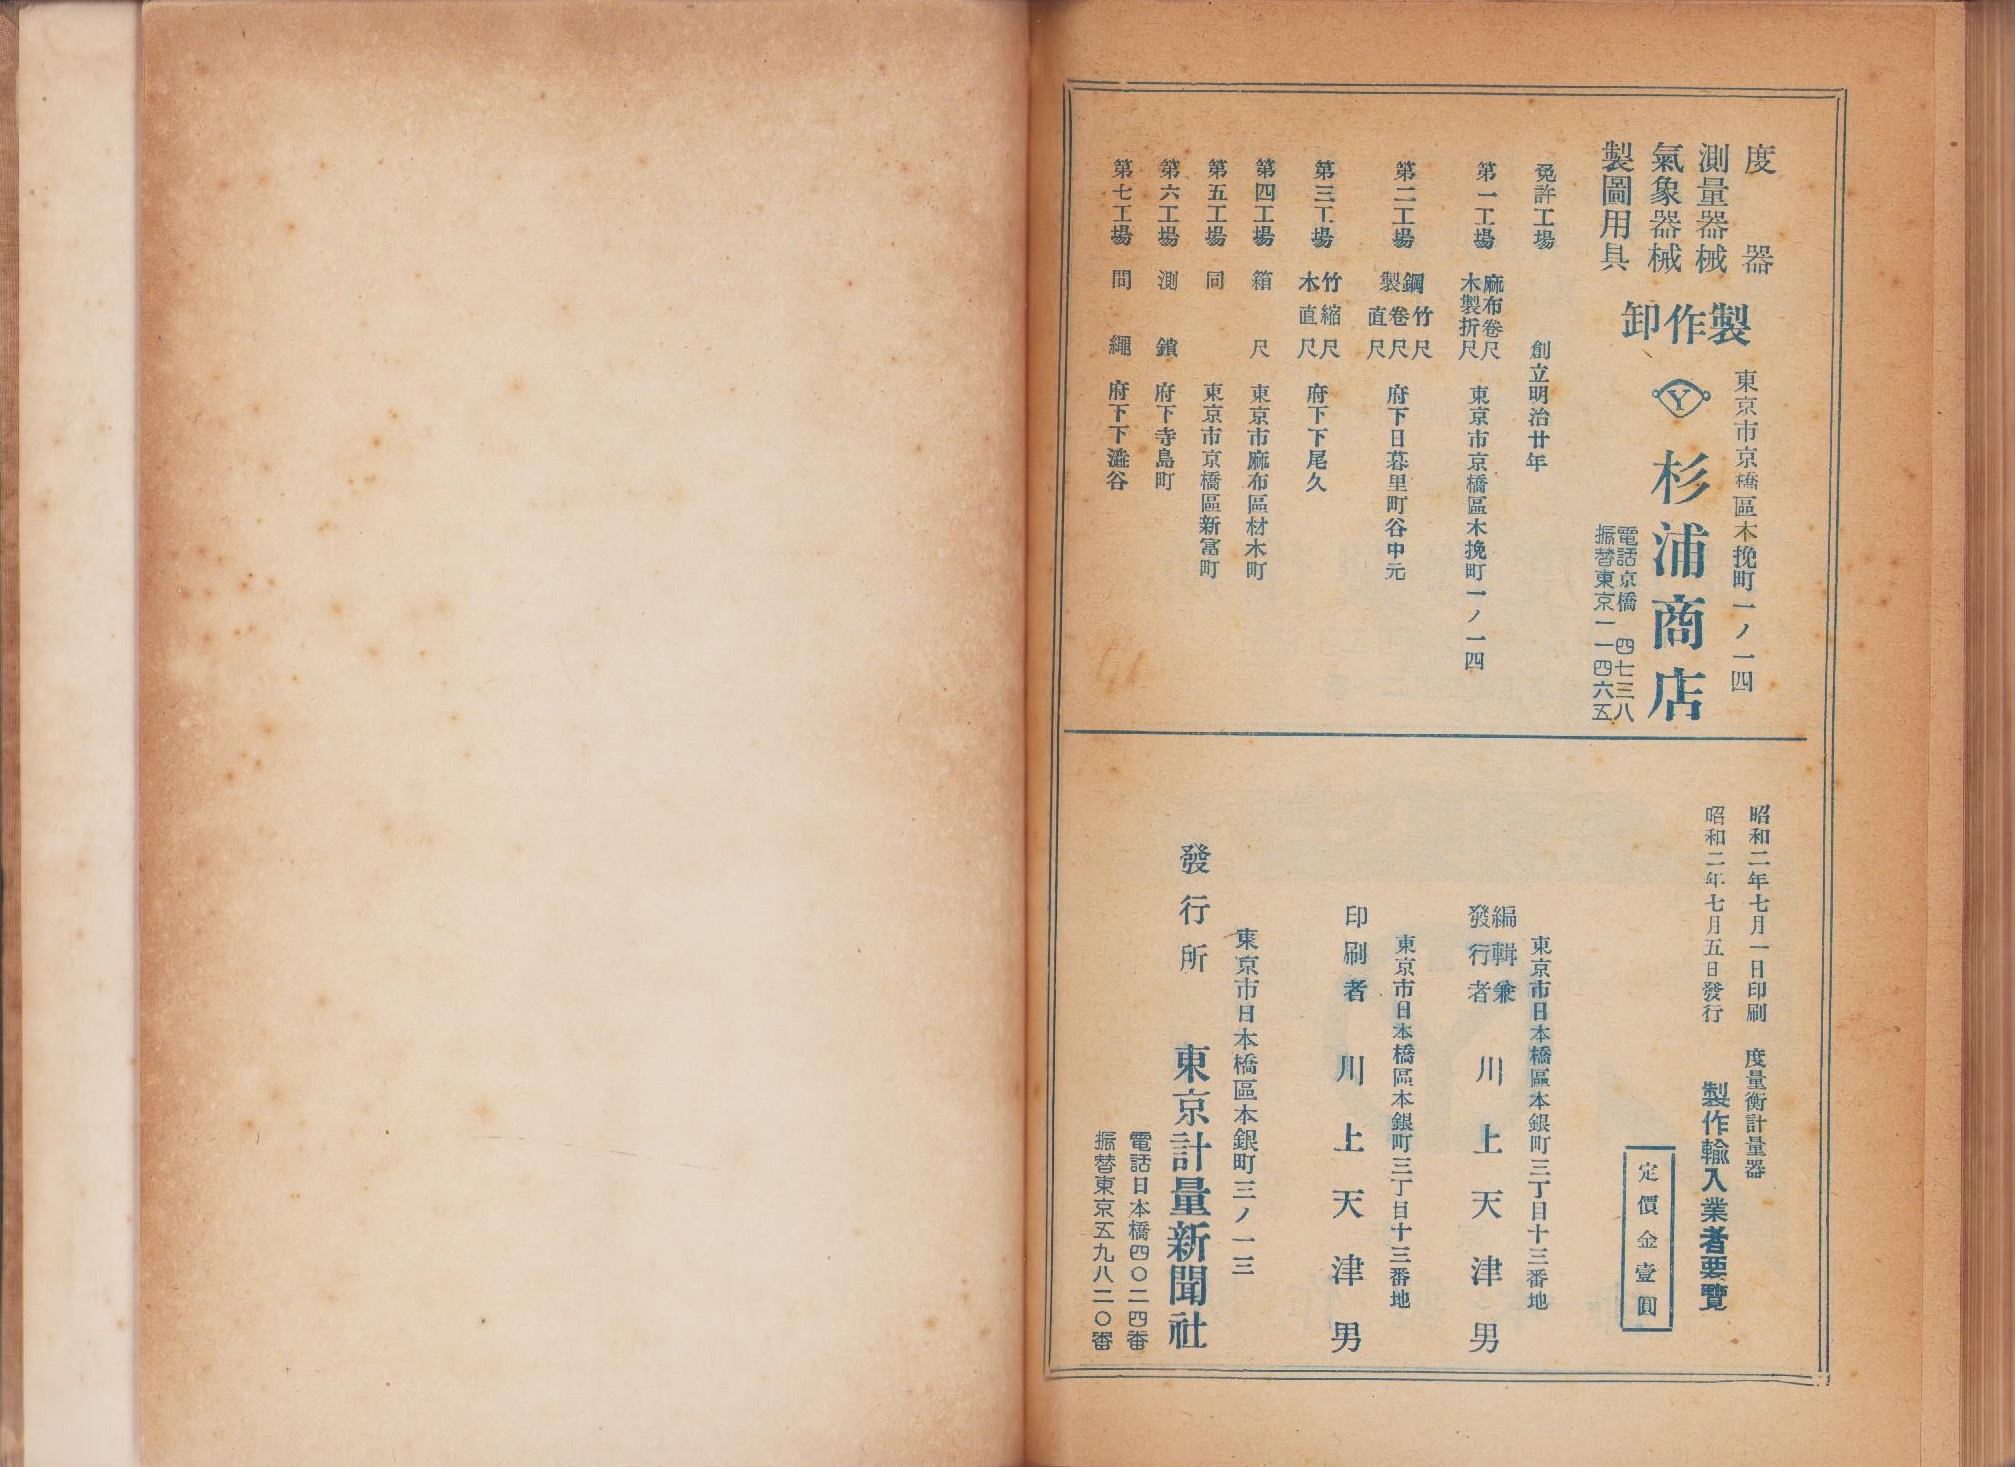 度器
測量器械
氣象器械
製圖用具
製作卸
東京市京橋區木挽町一ノ一四
Y
杉浦商店
電話京橋 四七三八
振替東京一一四六五
免許工場 創立明治廿年
第一工場 麻布卷尺 木製折尺 東京市京橋區木挽町一ノ一四
第二工場 竹尺 鋼製卷尺 直尺 府下日暮里町谷中元
第三工場 竹縮尺 木直尺 府下下尾久
第四工場 箱尺 東京市麻布區材木町
第五工場 同 東京市京橋區新富町
第六工場 測鎖 府下寺島町
第七工場 間繩 府下下澁谷
昭和二年七月一日印刷
昭和二年七月五日發行
度量衡計量器
製作輸入業者要覽
定價金壹圓
東京市日本橋區本銀町三丁目十三番地
編輯兼發行者 川上天津男
東京市日本橋區本銀町三丁目十三番地
印刷者 川上天津男
東京市日本橋區本銀町三ノ一三
發行所 東京計量新聞社
電話日本橋四〇二四番
振替東京五九八二〇番